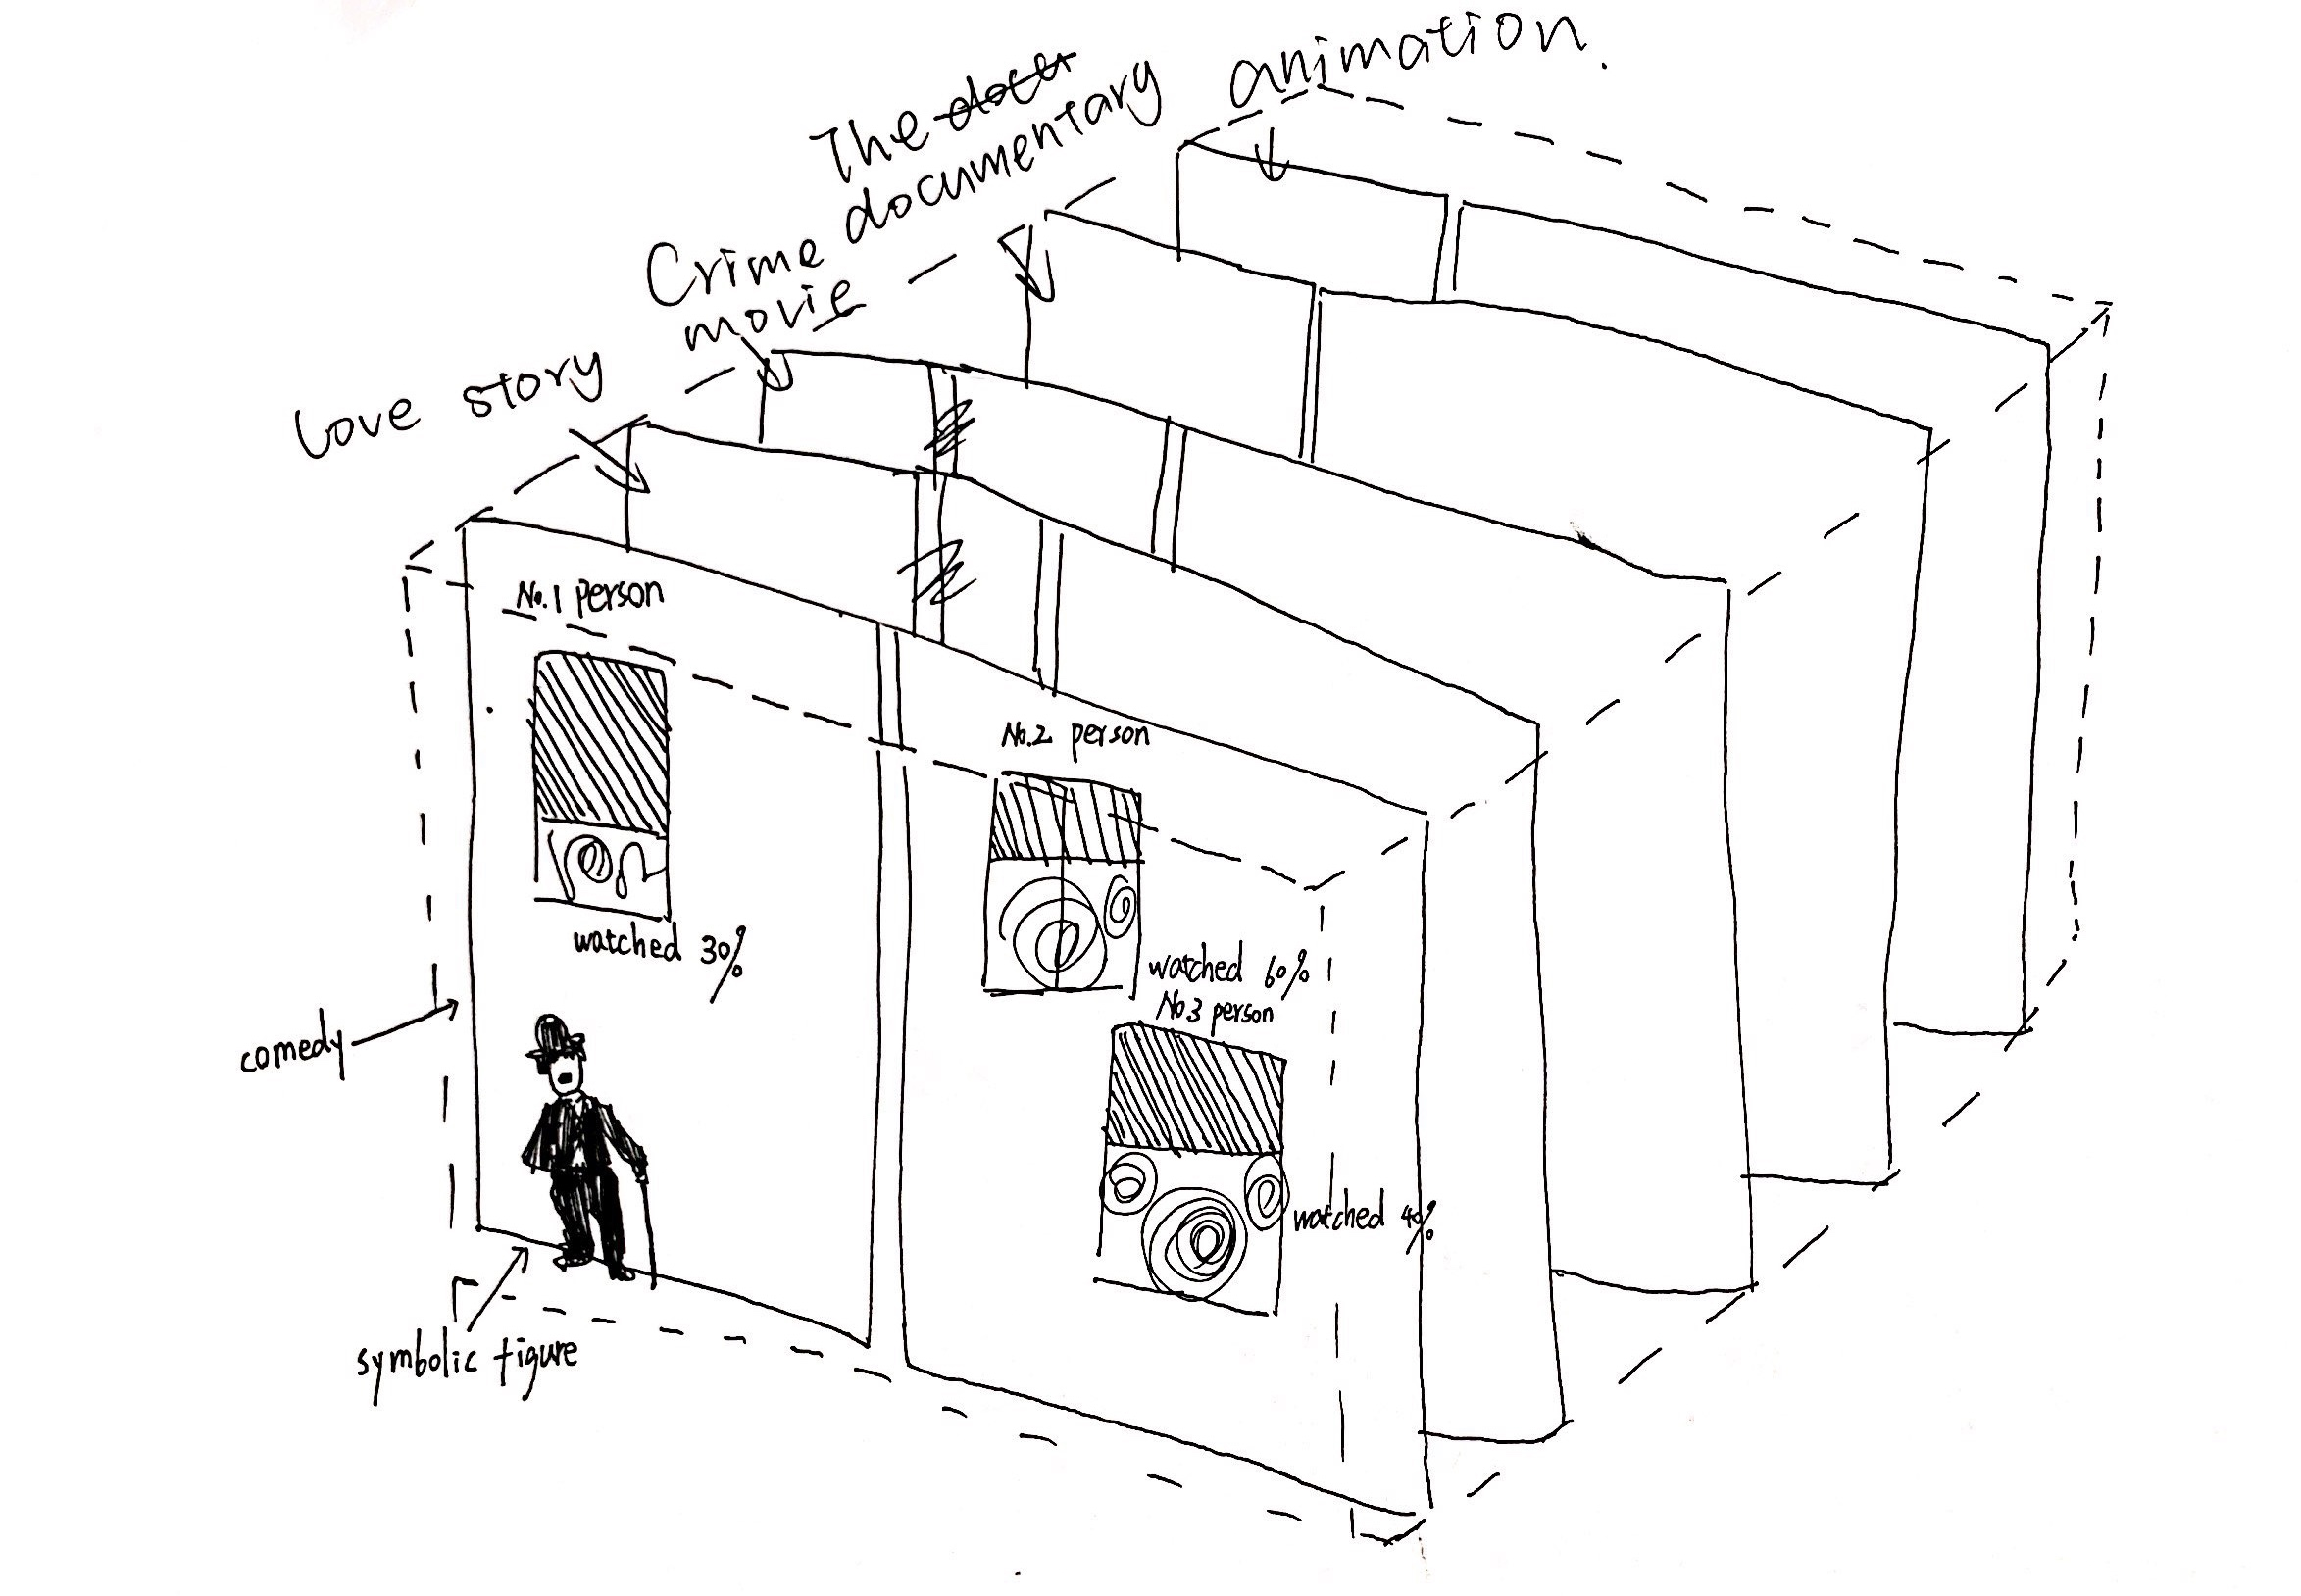 animation.
The docu
documentary
Crime
movie
Love story
No.1 person
watched 30%
No.2 person
watched 60%
No.3 person
watched 40%
comedy
symbolic figure